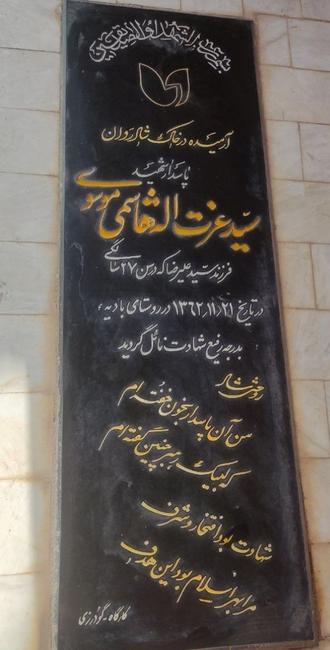 بسم رب الشهداء والصدیقین
آرمیده در خاک شالی روان
پاسدار شهید
سید عزت اله هاشمی موسوی
فرزند سید علیرضا که در سن ۲۷ سالگی
در تاریخ ۱۳۶۲،۱۱،۲۱ در روستای بادیه
بدرجه رفیع شهادت نائل گردید
روحش شاد
من آن پاسدار بخون خفته ام
که لبیک رهبر چنین گفته ام
شهادت بود افتخار و شرف
مرا بهر اسلام بود این هدف
کارگاه - گودرزی